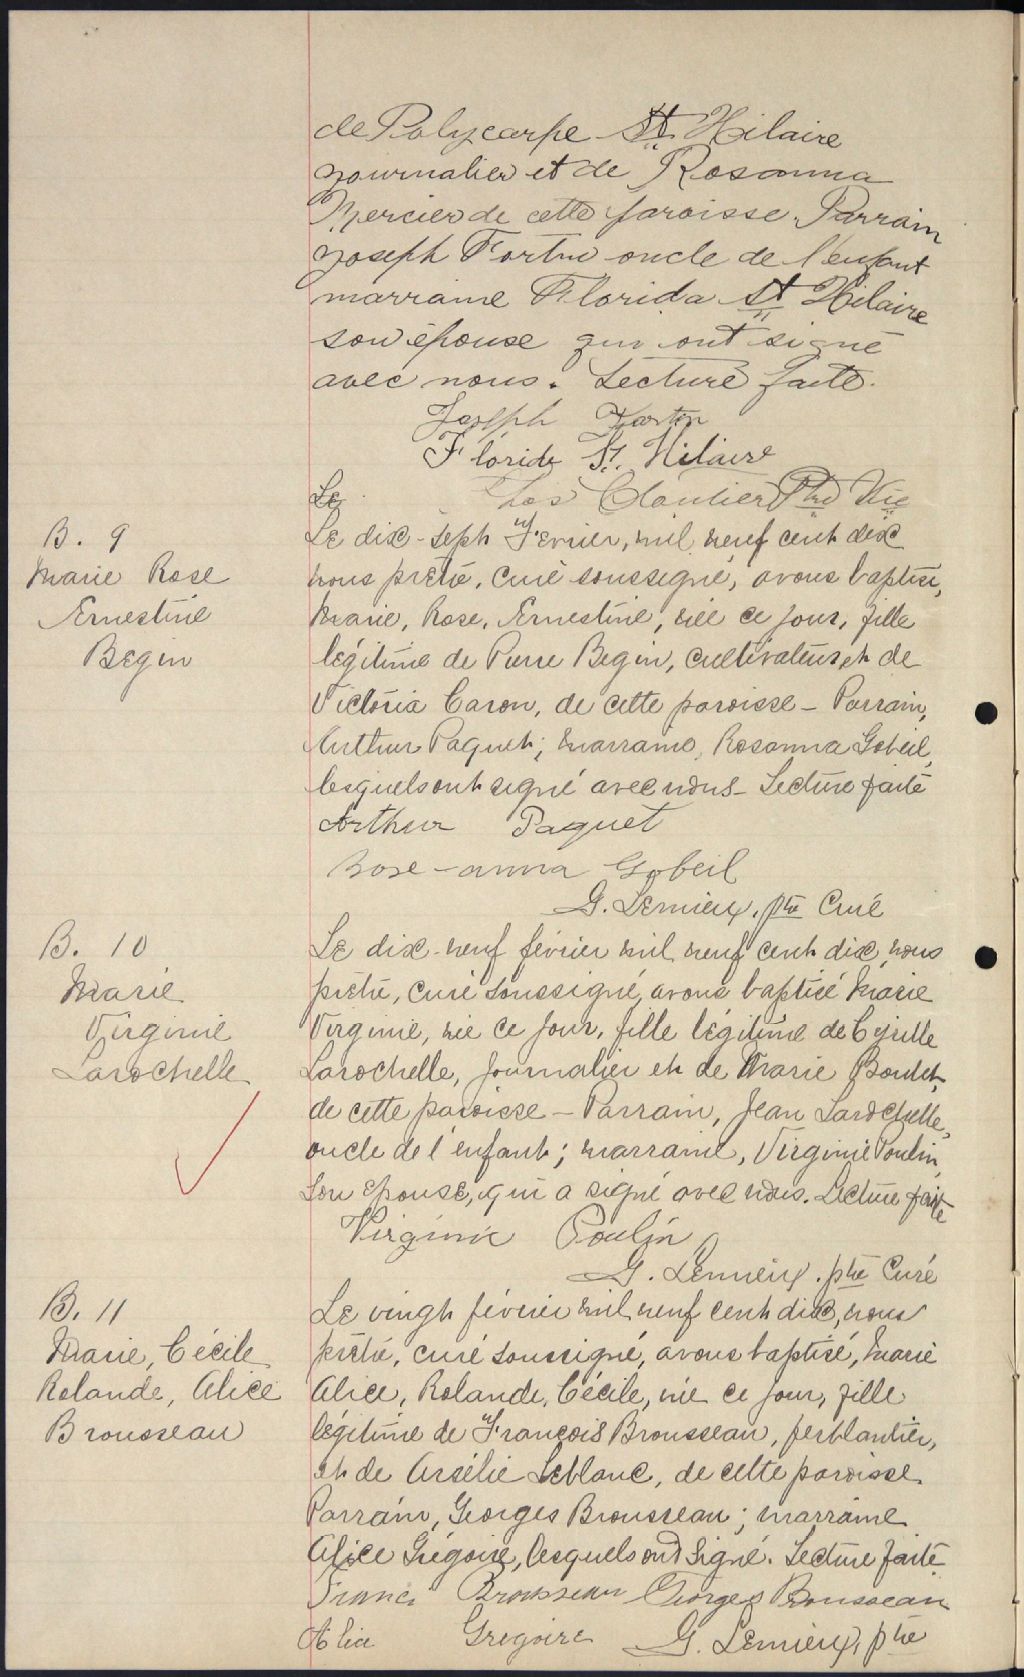 de Polycarpe St Hilaire
journalier et de Rosanna
Mercier de cette paroisse. Parrain
Joseph Fortin oncle de l'enfant
marraine Florida St Hilaire
son épouse qui ont signé
avec nous. Lecture faite.
Joseph Fortin
Florida St. Hilaire
Le Jos Cloutier Ptre Vic
B. 9
Marie Rose
Ernestine
Begin
Le dix-sept Fevrier, mil neuf cent dix
nous prêtre, curé soussigné, avons baptisé,
Marie, Rose, Ernestine, née ce jour, fille
légitime de Pierre Begin, cultivateur et de
Victoria Caron, de cette paroisse - Parrain,
Arthur Paquet; marraine, Rosanna Gobeil,
lesquels ont signé avec nous - Lecture faite
Arthur Paquet
Rose-anna Gobeil
G. Lemieux, ptre Curé
B. 10
Marie
Virginie
Larochelle
Le dix-neuf février mil neuf cent dix, nous
prêtre, curé soussigné, avons baptisé Marie
Virginie, née ce jour, fille légitime de Cyrille
Larochelle, journalier et de Marie Boulet,
de cette paroisse - Parrain, Jean Larochelle,
oncle de l'enfant; marraine, Virginie Poulin,
son épouse, qui a signé avec nous. Lecture faite
Virginie Poulin
G. Lemieux, ptre Curé
B. 11
Marie, Cécile
Rolande, Alice
Brousseau
Le vingt février mil neuf cent dix, nous
prêtre, curé soussigné, avons baptisé, Marie
Alice, Rolande, Cécile, née ce jour, fille
légitime de François Brousseau, ferblantier,
et de Arsélie Leblanc, de cette paroisse.
Parrain, Georges Brousseau; marraine
Alice Grégoire, lesquels ont signé. Lecture faite.
Brousseau Georges Brousseau
Alice Gregoire G. Lemieux, ptre